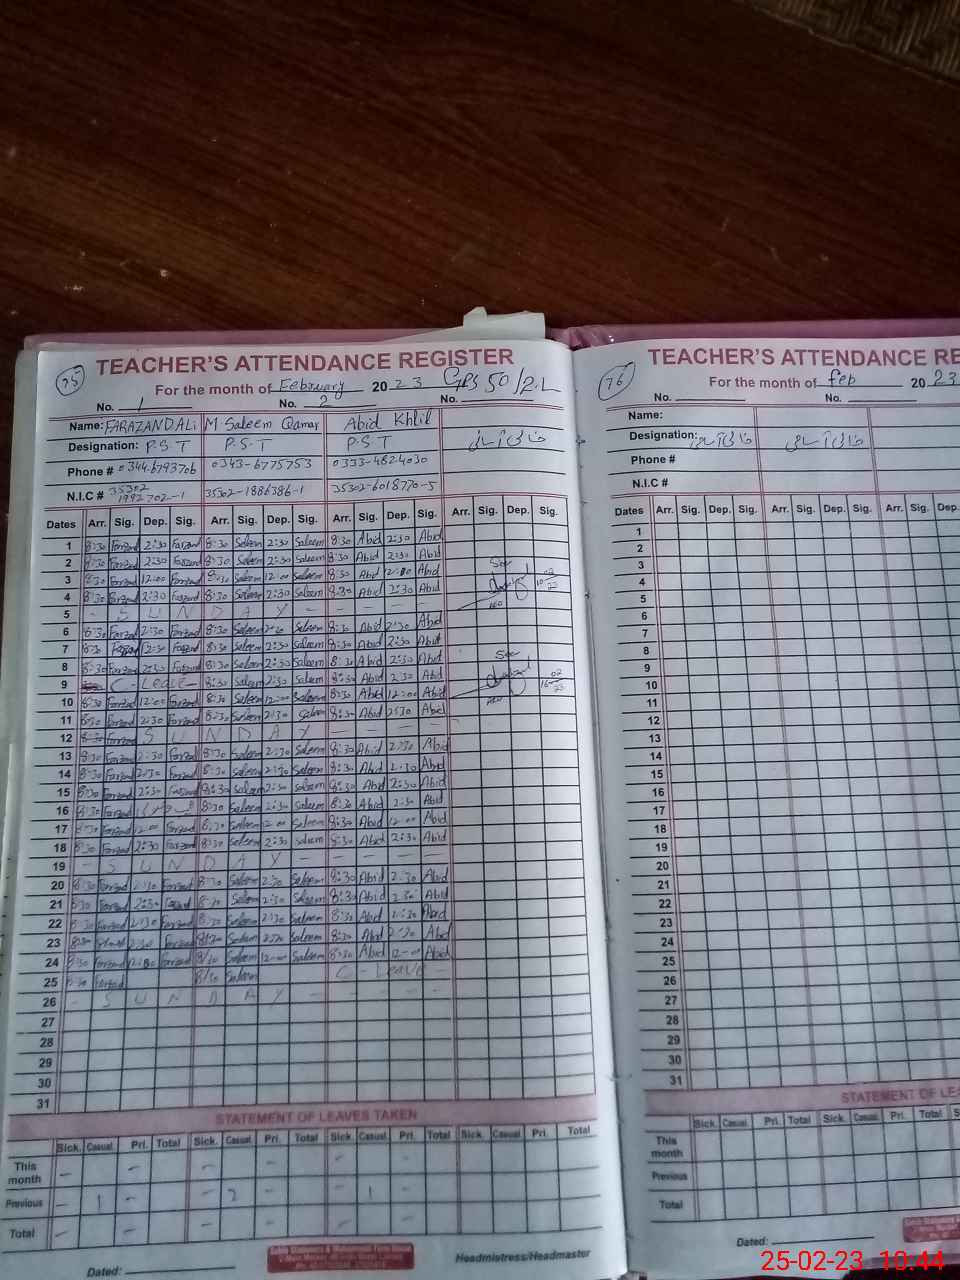 TEACHER'S ATTENDANCE REGISTER
75 For the month of February 2023 GPS 50/2.L
No. 1 No. 2 No.
Name: FARAZAND ALi M Saleem Qamar Abid Khlil
Designation: P.S.T P.S.T P.S.T خالی آسامی
Phone # 0344-6793706 0343-6775753 0333-4824030
N.I.C # 35302 1992702-1 35302-1886386-1 35302-6018770-5
Dates Arr. Sig. Dep. Sig. Arr. Sig. Dep. Sig. Arr. Sig. Dep. Sig. Arr. Sig. Dep. Sig.
1 8:30 Farzad 2:30 Farzad 8:30 Saleem 2:30 Saleem 8:30 Abid 2:30 Abid
2 8:30 Farzad 2:30 Farzad 8:30 Saleem 2:30 Saleem 8:30 Abid 2:30 Abid
3 8:30 Farzad 12:00 Farzad 8:30 Saleem 12:00 Saleem 8:30 Abid 12:00 Abid
4 8:30 Farzad 2:30 Farzad 8:30 Saleem 2:30 Saleem 8:30 Abid 2:30 Abid
5 - S U N D A Y - - - - -
6 8:30 Farzad 2:30 Farzad 8:30 Saleem 2:30 Saleem 8:30 Abid 2:30 Abid
7 8:30 Farzad 2:30 Farzad 8:30 Saleem 2:30 Saleem 8:30 Abid 2:30 Abid
8 8:30 Farzad 2:30 Farzad 8:30 Saleem 2:30 Saleem 8:30 Abid 2:30 Abid
9 C - Leave - 8:30 Saleem 2:30 Saleem 8:30 Abid 2:30 Abid
10 8:30 Farzad 12:00 Farzad 8:30 Saleem 12:00 Saleem 8:30 Abid 12:00 Abid
11 8:30 Farzad 2:30 Farzad 8:30 Saleem 2:30 Saleem 8:30 Abid 2:30 Abid
12 8:30 Farzad S U N D A Y - - - - -
13 8:30 Farzad 2:30 Farzad 8:30 Saleem 2:30 Saleem 8:30 Abid 2:30 Abid
14 8:30 Farzad 2:30 Farzad 8:30 Saleem 2:30 Saleem 8:30 Abid 2:30 Abid
15 8:30 Farzad 2:30 Farzad 8:30 Saleem 2:30 Saleem 8:30 Abid 2:30 Abid
16 8:30 Farzad 8:30 Saleem 2:30 Saleem 8:30 Abid 2:30 Abid
17 8:30 Farzad 12:00 Farzad 8:30 Saleem 12:00 Saleem 8:30 Abid 12:00 Abid
18 8:30 Farzad 2:30 Farzad 8:30 Saleem 2:30 Saleem 8:30 Abid 2:30 Abid
19 - S U N D A Y - - - - -
20 8:30 Farzad 2:30 Farzad 8:30 Saleem 2:30 Saleem 8:30 Abid 2:30 Abid
21 8:30 Farzad 2:30 Farzad 8:30 Saleem 2:30 Saleem 8:30 Abid 2:30 Abid
22 8:30 Farzad 2:30 Farzad 8:30 Saleem 2:30 Saleem 8:30 Abid 2:30 Abid
23 8:30 2:30 Farzad 8:30 Saleem 2:30 Saleem 8:30 Abid 2:30 Abid
24 8:30 Farzad Farzad 8:30 Saleem 12:00 Saleem 8:30 Abid 12:00 Abid
25 8:30 Farzad 8:30 Saleem C - Leave -
26 - S U N D A Y - - - - -
27
28
29
30
31
STATEMENT OF LEAVES TAKEN
Sick. Casual Pri. Total Sick. Casual Pri. Total Sick. Casual Pri. Total Sick. Casual Pri. Total
This month - - - - - -
Previous - 1 - - 2 - 1
Total - - - - -
Headmistress/Headmaster
Dated:
TEACHER'S ATTENDANCE RE
76 For the month of feb 2023
No. No.
Name:
Designation: خالی آسامی خالی آسامی
Phone #
N.I.C #
Dates Arr. Sig. Dep. Sig. Arr. Sig. Dep. Sig. Arr. Sig. Dep.
1
2
3
4
5
6
7
8
9
10
11
12
13
14
15
16
17
18
19
20
21
22
23
24
25
26
27
28
29
30
31
STATEMENT OF LE
Sick. Casual Pri. Total Sick. Casual Pri. Total Sick. Casual Pri. Total
This month
Previous
Total
Dated:
25-02-23 10.44